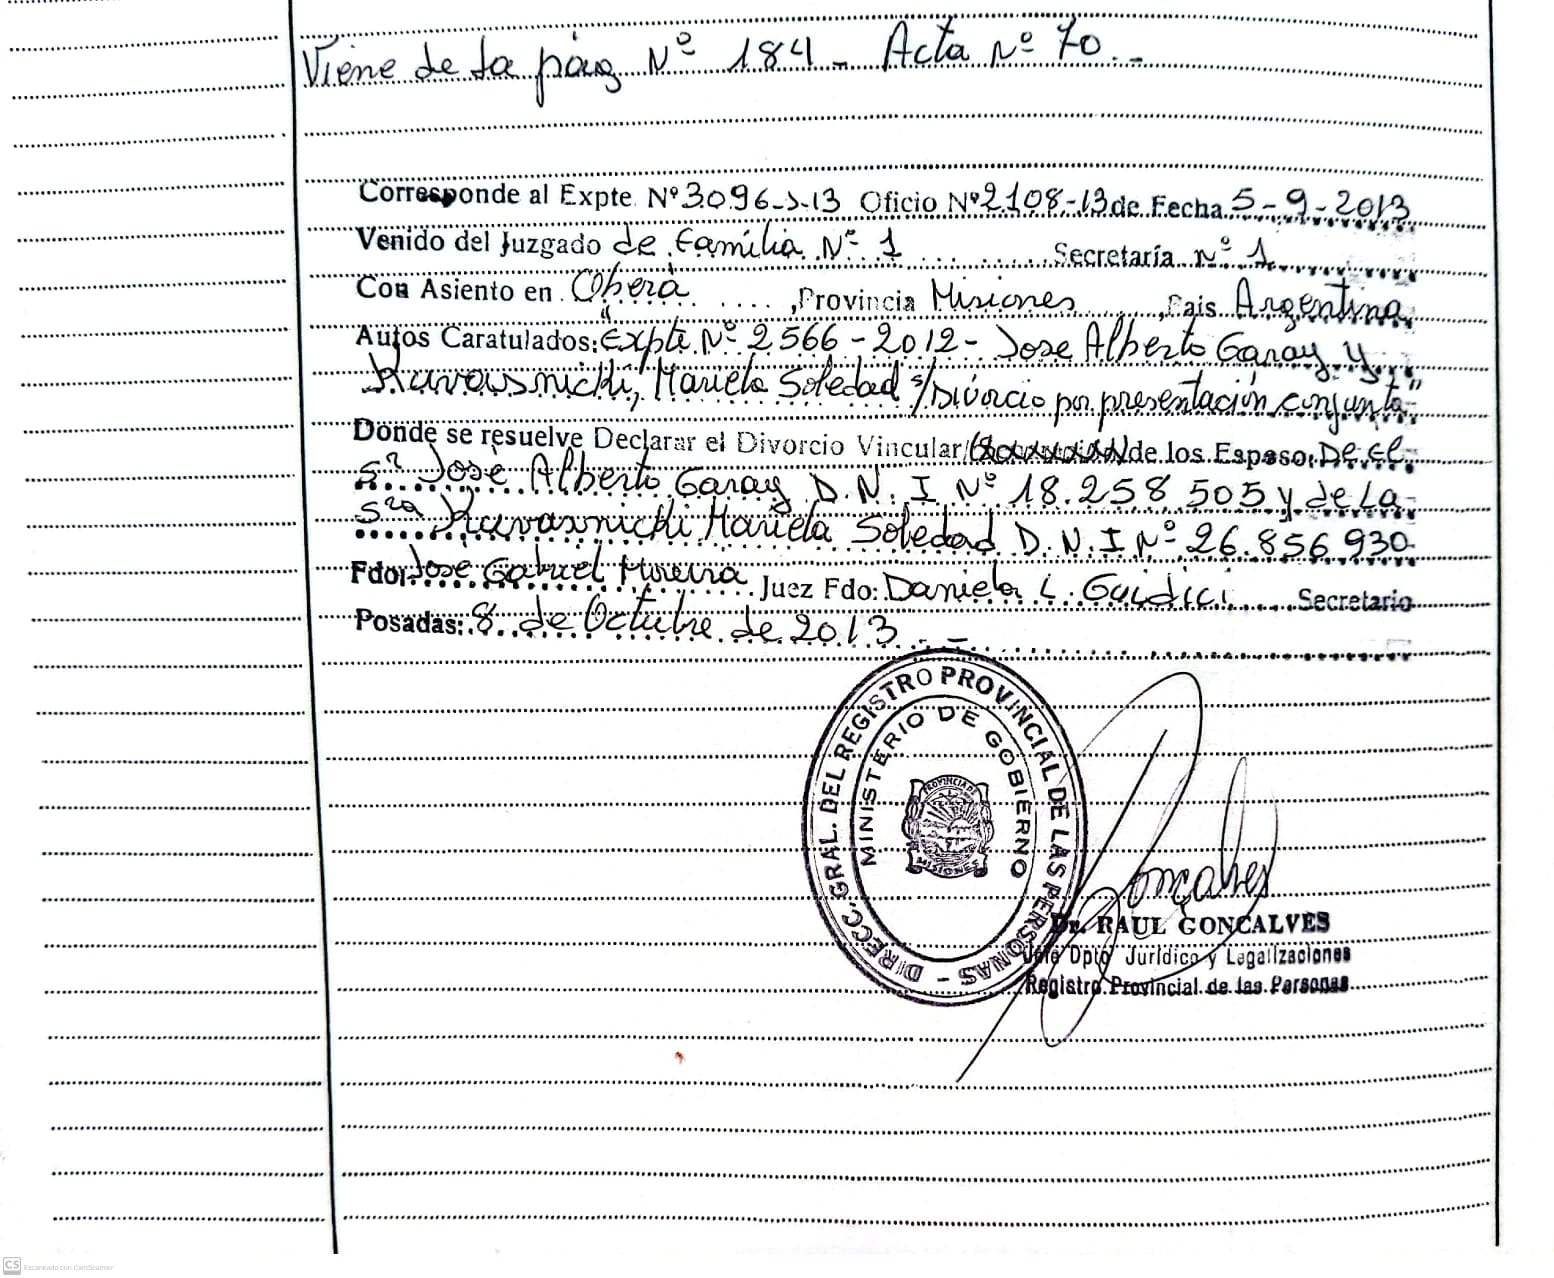 Viene de la pág Nº 184 - Acta Nº 70.-
Corresponde al Expte Nº 3096-J-13 Oficio Nº 2108-13 de Fecha 5-9-2013
Venido del Juzgado de Familia Nº 1 Secretaría Nº 1
Con Asiento en Oberá, Provincia Misiones, Pais Argentina
Autos Caratulados: "Expte Nº 2566-2012- Jose Alberto Garay y
Kuvasnicki, Mariela Soledad s/Divorcio por presentación conjunta"
Donde se resuelve Declarar el Divorcio Vincular/ de los Esposo: De el
Sr José Alberto Garay D.N.I Nº 18.258.505 y de la
Sra Kuvasnicki Mariela Soledad D.N.I Nº 26.856.930
Fdo: José Gabriel Moreira Juez Fdo: Daniela L. Guidici Secretario
Posadas: 8 de Octubre de 2013.-
DIRECC. GRAL. DEL REGISTRO PROVINCIAL DE LAS PERSONAS -
MINISTERIO DE GOBIERNO
PROVINCIA DE
MISIONES
Goncalves
Dr. RAUL GONCALVES
Jefe Dpto Jurídico y Legalizaciones
Registro Provincial de las Personas
CS Escaneado con CamScanner